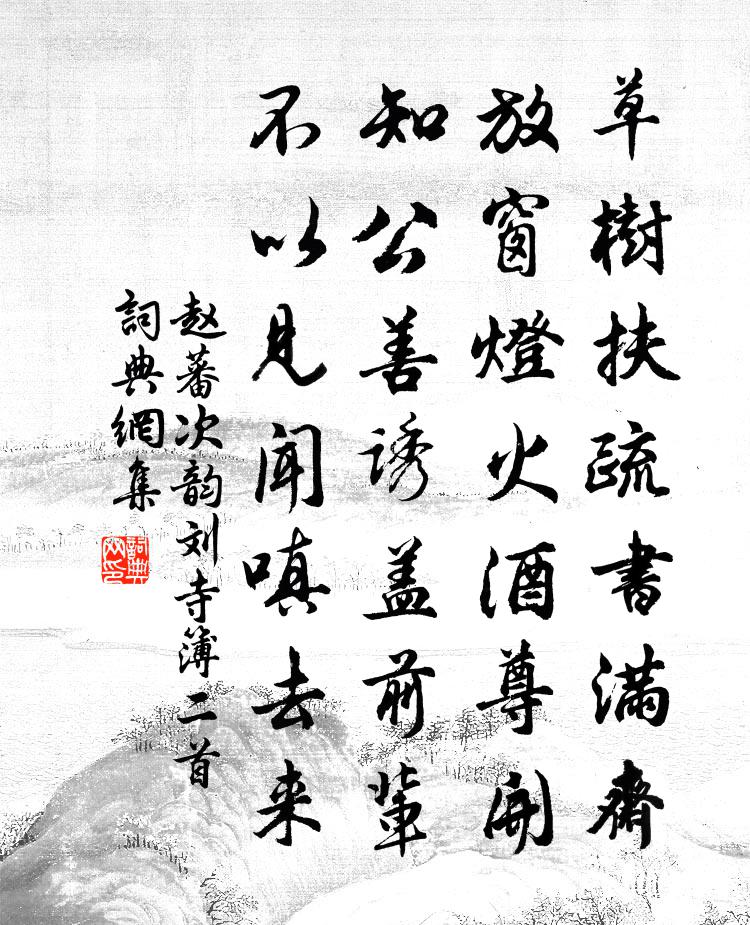 草樹扶疏書滿齋
放窗燈火酒尊開
知公善誘盖前輩
不以見聞嗔去来
赵蕃次韵刘寺簿二首
詞典網集
詞典网印